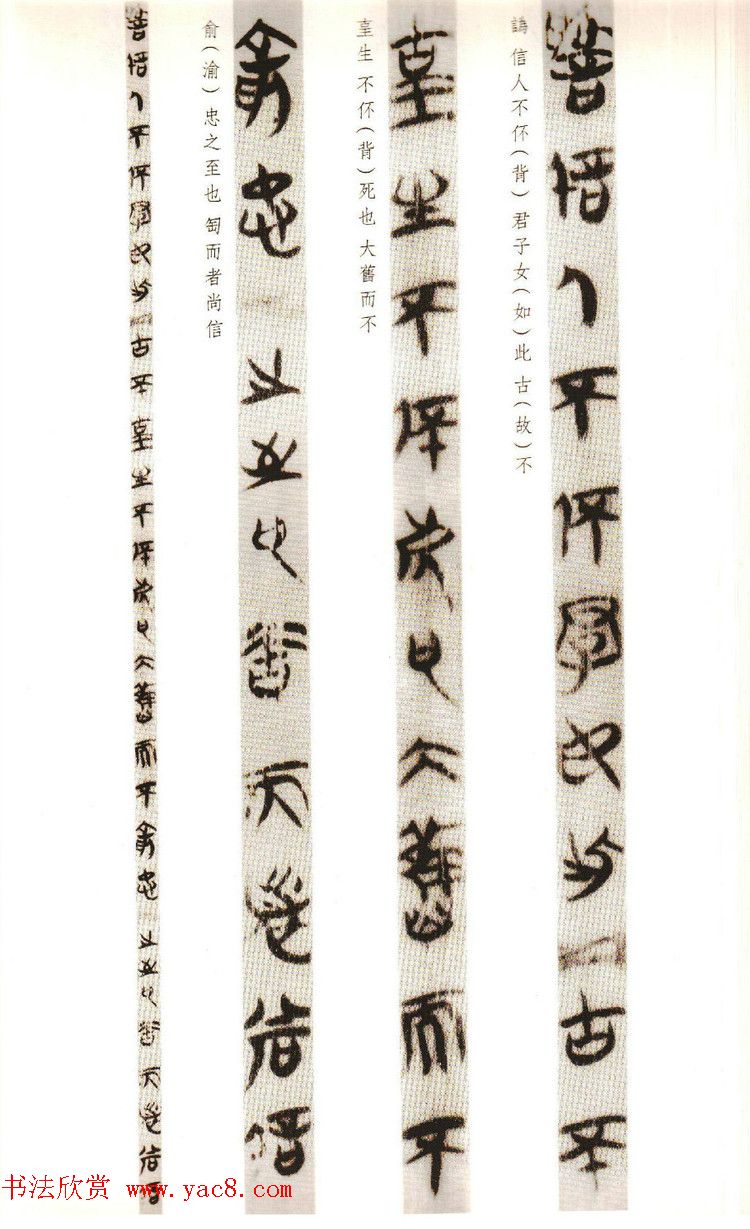 譌 信人不伓(背) 君子女(如)此 古(故)不
生 不伓(背)死也 大舊而不
俞(渝) 忠之至也 匋而者尚信
书法欣赏 www.yac8.com